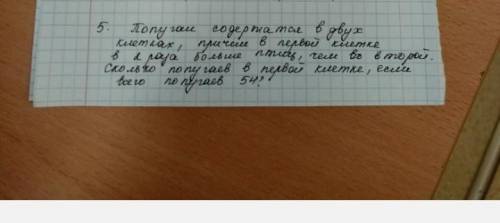 5. Попугаи содержатся в двух
клетках, причем в первой клетке
в 2 раза больше птиц, чем во второй.
Сколько попугаев в первой клетке, если
всего попугаев 54?